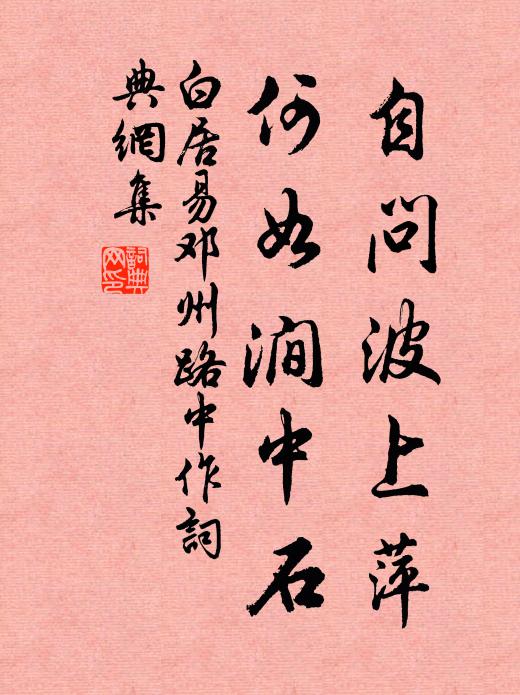 自问波上萍
何如涧中石
白居易邓州路中作词
典網集
詞典
网印